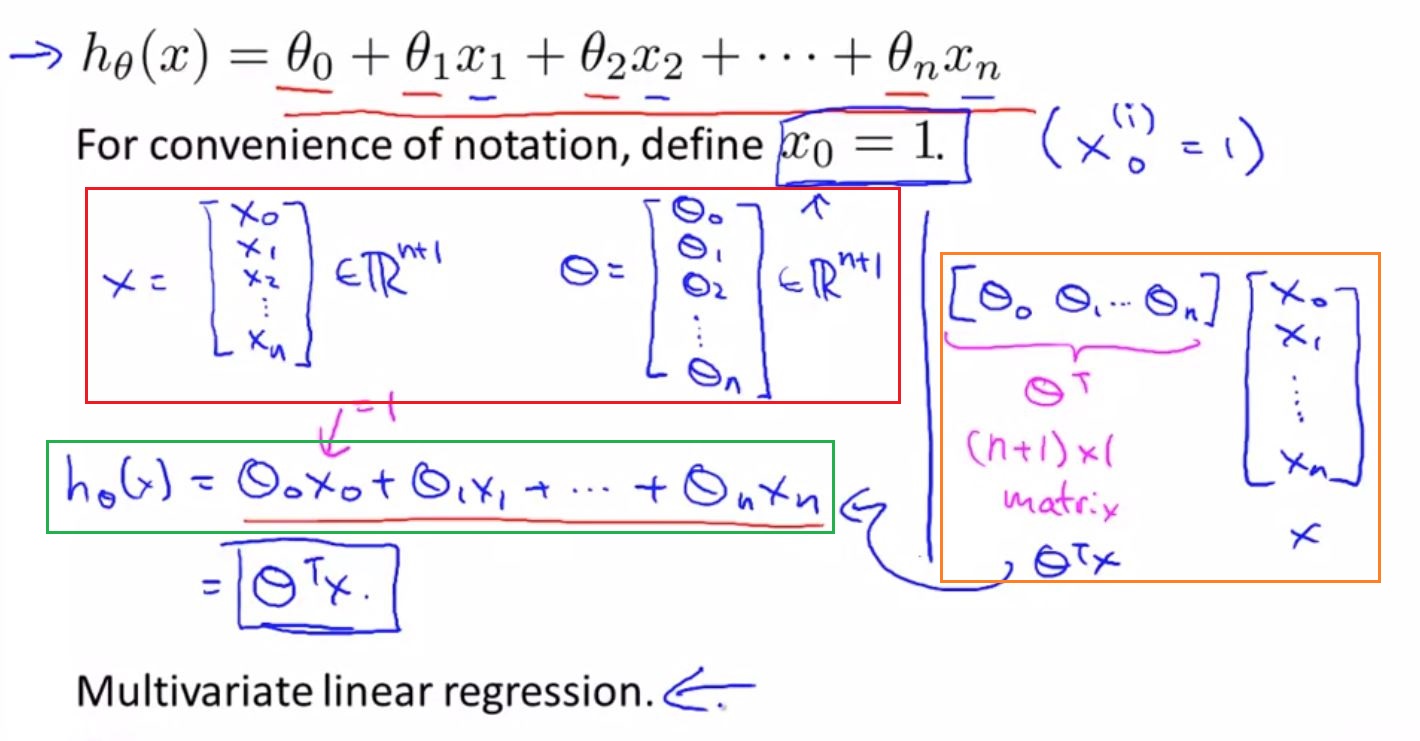 → hθ(x) = θ₀ + θ₁x₁ + θ₂x₂ + ⋯ + θₙxₙ
For convenience of notation, define x₀ = 1. (x₀⁽ⁱ⁾ = 1)
x = [x₀ x₁ x₂ ⋮ xₙ] ∈ ℝⁿ⁺¹ θ = [θ₀ θ₁ θ₂ ⋮ θₙ] ∈ ℝⁿ⁺¹
[θ₀ θ₁ ⋯ θₙ] [x₀ x₁ ⋮ xₙ]
θᵀ
(n+1)×1
matrix
θᵀx x
=1
hθ(x) = θ₀x₀ + θ₁x₁ + ⋯ + θₙxₙ
= θᵀx.
Multivariate linear regression. ←